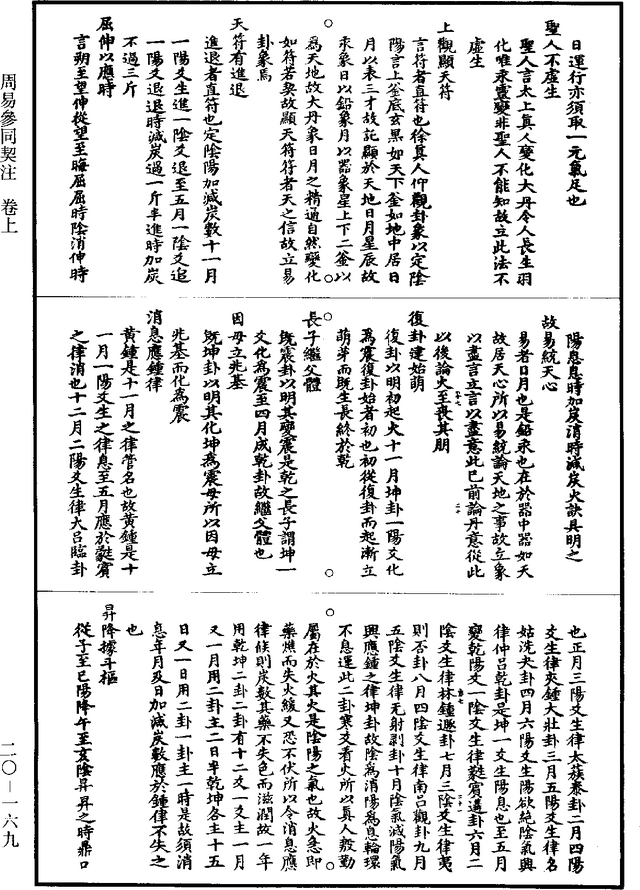 周易參同契注　卷上
二〇—一六九
日運行亦須取一元氣足也
聖人不虛生
聖人言太上真人變化大丹令人長生羽
化唯永靈變非聖人不能知故立此法不
虛生
上觀顯天符
言符者直符也徐真人仰觀卦象以定陰
陽言上釜底玄黑如天下釜如地中居日
月以表三才故託顯於天地日月星辰故
汞象日以鉛象月以器象星上下二釜以
為天地故大丹象日月之精通自然變化
如符若契故顯天符符者天之信故立易
卦象焉
天符有進退
進退者直符也定陰陽加減炭數十一月
一陽爻生進一陰爻退至五月一陰爻追
一陽爻退退時減炭過一斤半進時加炭
不過三斤
屈伸以應時
言朔至望伸從望至晦屈屈時陰消伸時
陽息息時加炭消時減炭火訣具明之
故易統天心
易者日月也是鉛汞也在於器中器如天
故居天心所以易統論天地之事故立象
以盡言立言以盡意此已前論丹意從此
以後論火至喪其朋
復卦建始萌
復卦以明初起火十一月坤卦一陽文化
為震復卦始者初也初從復卦而起漸立
萌芽而既生長終於乾
長子繼父體
既震卦以明其變震是乾之長子謂坤一
文化為震至四月成乾卦故繼父體也
因母立兆基
既坤卦以明其化坤為震母所以因母立
兆基而化為震
消息應鍾律
黃鍾是十一月之律管名也故黃鍾是十
一月一陽爻生之律息至五月應於蕤賓
之律消也十二月二陽爻生律大呂臨卦
也正月三陽爻生律太簇泰卦二月四陽
爻生律夾鍾大壯卦三月五陽爻生律名
姑洗夬卦四月六陽爻生陽欲絶陰氣興
律仲呂乾卦是坤一爻生陽息也至五月
變乾陽爻一陰爻生律蕤賓遘卦六月二
陰爻生律林鍾遯卦七月三陰爻生律夷
則否卦八月四陰爻生律南呂觀卦九月
五陰爻生律無射剥卦十月陰氣減陽氣
興應鍾之律坤卦故陰為消陽為息輪環
不息運此二卦寒爻看火所以真人教勤
屬在於火其火是陰陽之氣也故火急即
藥燋而失火緩又恐不伏所以令消息應
律候則炭數其藥不失色而滋潤故一年
用乾坤二卦二卦有十二爻一爻主一月
又一月用二卦主二日半乾坤各主十五
日又一日用二卦一卦主一時是故須消
息年月及日加減炭數應於鍾律不失之
也
昇降據斗樞
從子至巳陽降午至亥陰昇昇之時鼎口